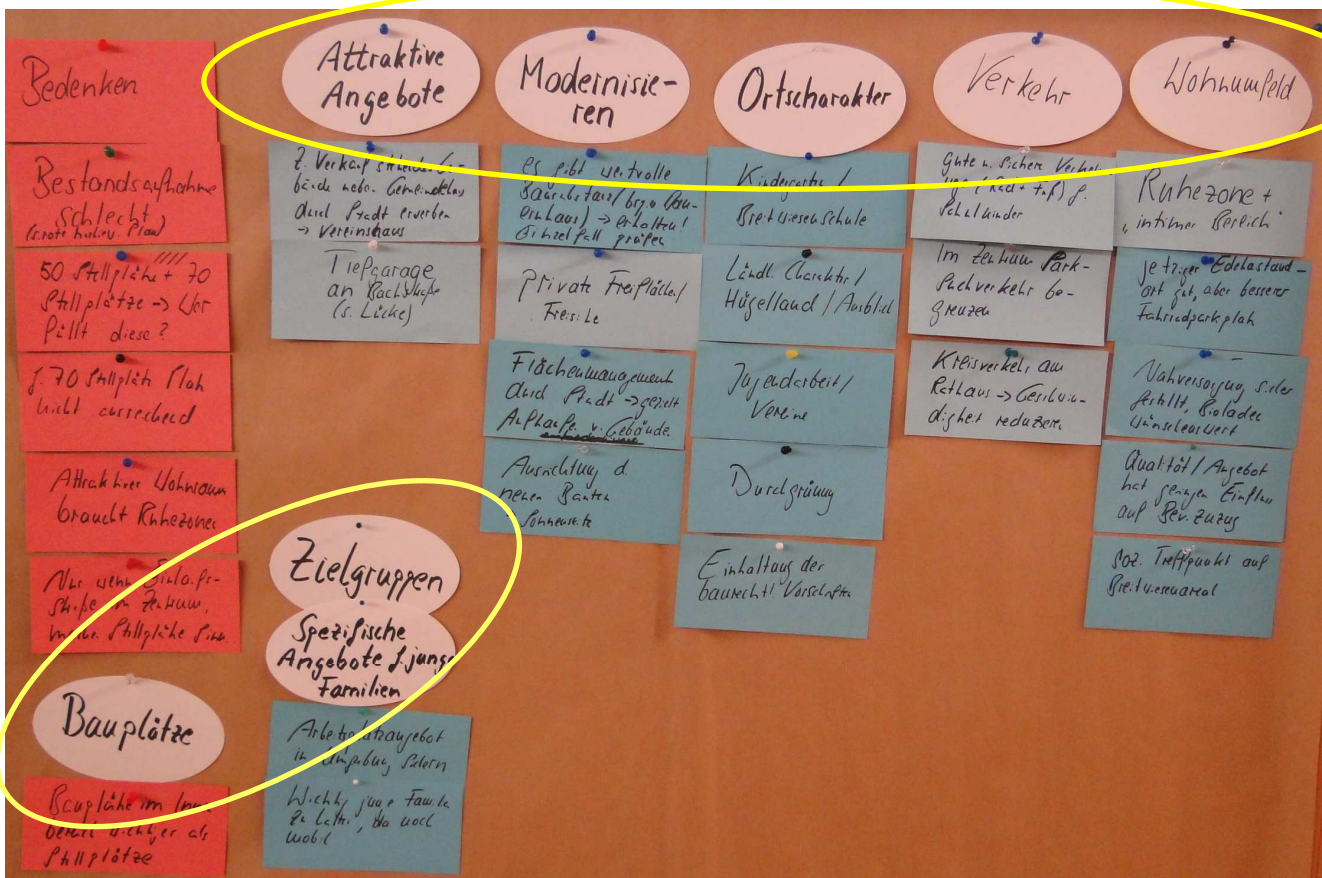 Bedenken
Bestandsaufnahme
schlecht
50 Stellplätze + 70
Stellplätze → Wer
füllt diese?
f. 70 Stellplätze Platz
nicht ausreichend
Attraktiver Wohnraum
braucht Ruhezonen
Nur wenn
im Zentrum,
machen Stellplätze Sinn
Bauplätze
Bauplätze im
wichtiger als
Stellplätze
Attraktive
Angebote
z. Verkauf
bäude neb. Gemeindehaus
durch Stadt erwerben
→ Vereinshaus
Tiefgarage
an Bachstraße
(s. Lücke)
Zielgruppen
Spezifische
Angebote f. junge
Familien
Arbeitsplatzangebot
in Umgebung
Wichtig junge Famile
zu halten, da noch
mobil
Modernisie-
ren
es gibt wertvolle
Bausubstanz
→ erhalten!
Einzelfall prüfen
Private Freiflächen/
Freisitze
Flächenmanagement
durch Stadt → gezielt
Aufkaufe v. Gebäude
Ausrichtung d.
neuen Bauten
Sonnenseite
Ortscharakter
Kindergarten/
Breitwiesenschule
Ländl. Charakter/
Hügelland/Ausblick
Jugendarbeit/
Vereine
Durchgrünung
Einhaltung der
baurechtl. Vorschriften
Verkehr
Gute u. sichere
wege (Rad + Fuß) f.
Schulkinder
Im Zentrum Park-
suchverkehr be-
grenzen
Kreisverkehr am
Rathaus → Geschwin-
digkeit reduzieren
Wohnumfeld
Ruhezone +
"intimer Bereich"
jetziger Edekastand-
ort gut, aber besserer
Fahrradparkplatz
Nahversorgung
gestellt, Bioladen
wünschenswert
Qualität/Angebot
hat geringen Einfluss
auf Bev.zuzug
soz. Treffpunkt auf
Breitwiesenareal